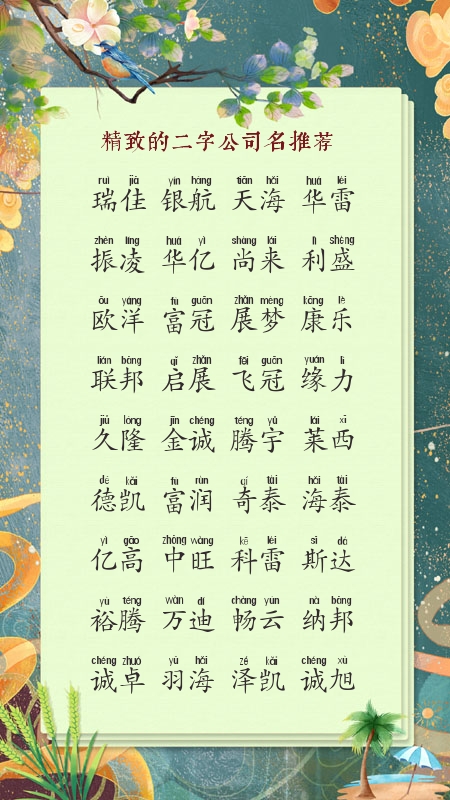 精致的二字公司名推荐
ruì jiā yín háng tiān hǎi huá léi
瑞佳 银航 天海 华雷
zhèn líng huá yì shàng lái lì shèng
振凌 华亿 尚来 利盛
ōu yáng fù guān zhǎn mèng kāng lè
欧洋 富冠 展梦 康乐
lián bāng qǐ zhǎn fēi guān yuán lì
联邦 启展 飞冠 缘力
jiǔ lóng jīn chéng téng yǔ lái xī
久隆 金诚 腾宇 莱西
dé kǎi fù rùn qí tài hǎi tài
德凯 富润 奇泰 海泰
yì gāo zhōng wàng kē léi sī dá
亿高 中旺 科雷 斯达
yù téng wàn dí chàng yún nà bāng
裕腾 万迪 畅云 纳邦
chéng zhuó yǔ hǎi zé kǎi chéng xù
诚卓 羽海 泽凯 诚旭